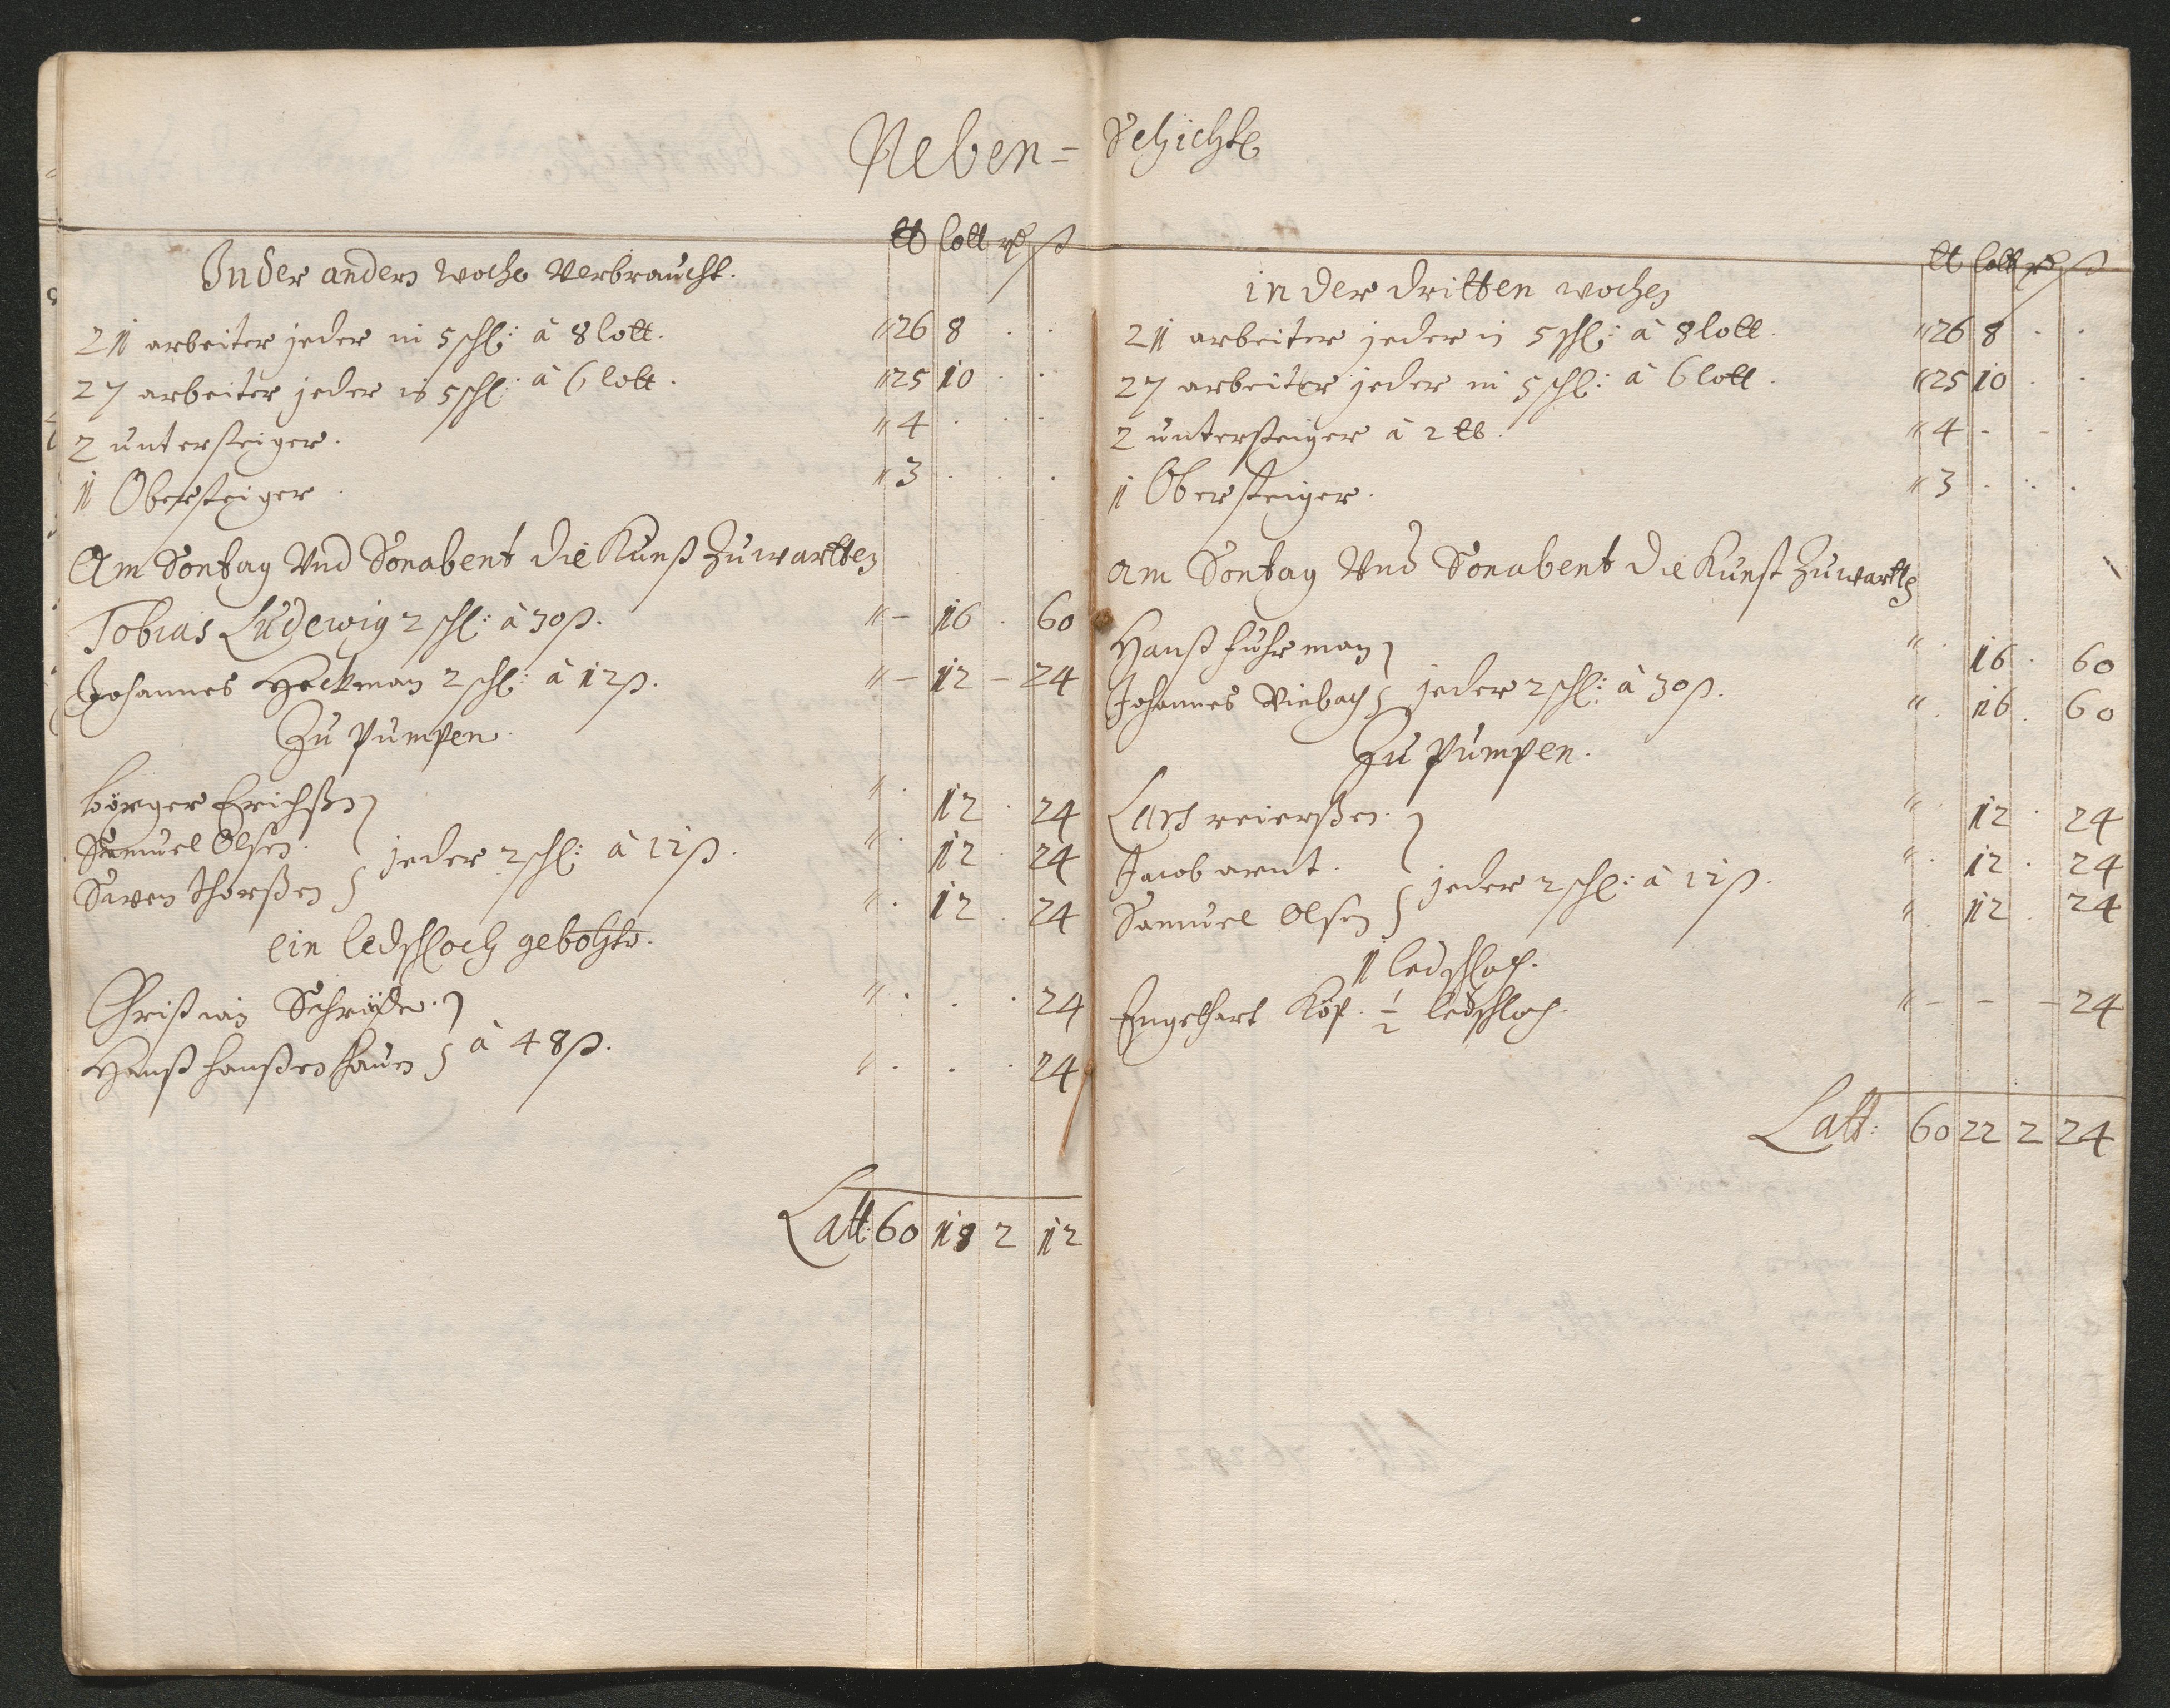 Neben= Schichte
℔ lott rd ß
In der andern woche Verbraucht.
21 arbeiter jeder in 5 schl: à 8 lott. " 26 8 . .
27 arbeiter jeder in 5 schl: à 6 lott. " 25 10 . .
2 untersteiger. " 4 . . .
1 Obersteiger. " 3 . . .
Am Sontag Vnd Sonabent die Kunst Zuwartten
Tobias Ludewig 2 schl: à 30 ß. " - 16 . 60
Johannes Heckman 2 schl: à 12 ß. " - 12 - 24
Zu pumpen.
börger Erichßen " . 12 . 24
Samuel Olsen. jeder 2 schl: à 12 ß. " . 12 . 24
Siwen Thorßen " . 12 . 24
ein ledschloch gebohrt.
Christian Schröder. " . . . 24
Hanß hanßen à 48 ß. " . . . 24
Latt: 60 18 2 12
℔ lott rd ß
in der dritten wochen
21 arbeiter jeder in 5 schl: à 8 lott. " 26 8 . .
27 arbeiter jeder in 5 schl: à 6 lott. " 25 10 . .
2 untersteiger à 2 ℔. " 4 - - .
1 Obersteiger. " 3 . . .
am Sontag Vnd Sonabent die Kunst Zuwartten
Hanß fuhrman " . 16 . 60
Johannes Viebach jeder 2 schl: à 30 ß. " . 16 . 60
Zu pumpen.
Lars reierßen. " . 12 . 24
Jacob arnt. jeder 2 schl: à 12 ß. " . 12 . 24
Samuel Olsen " . 12 . 24
1 ledschloch.
Engelhart Köp. 1/2 ledschloch. " - - - 24
Latt: 60 22 2 24